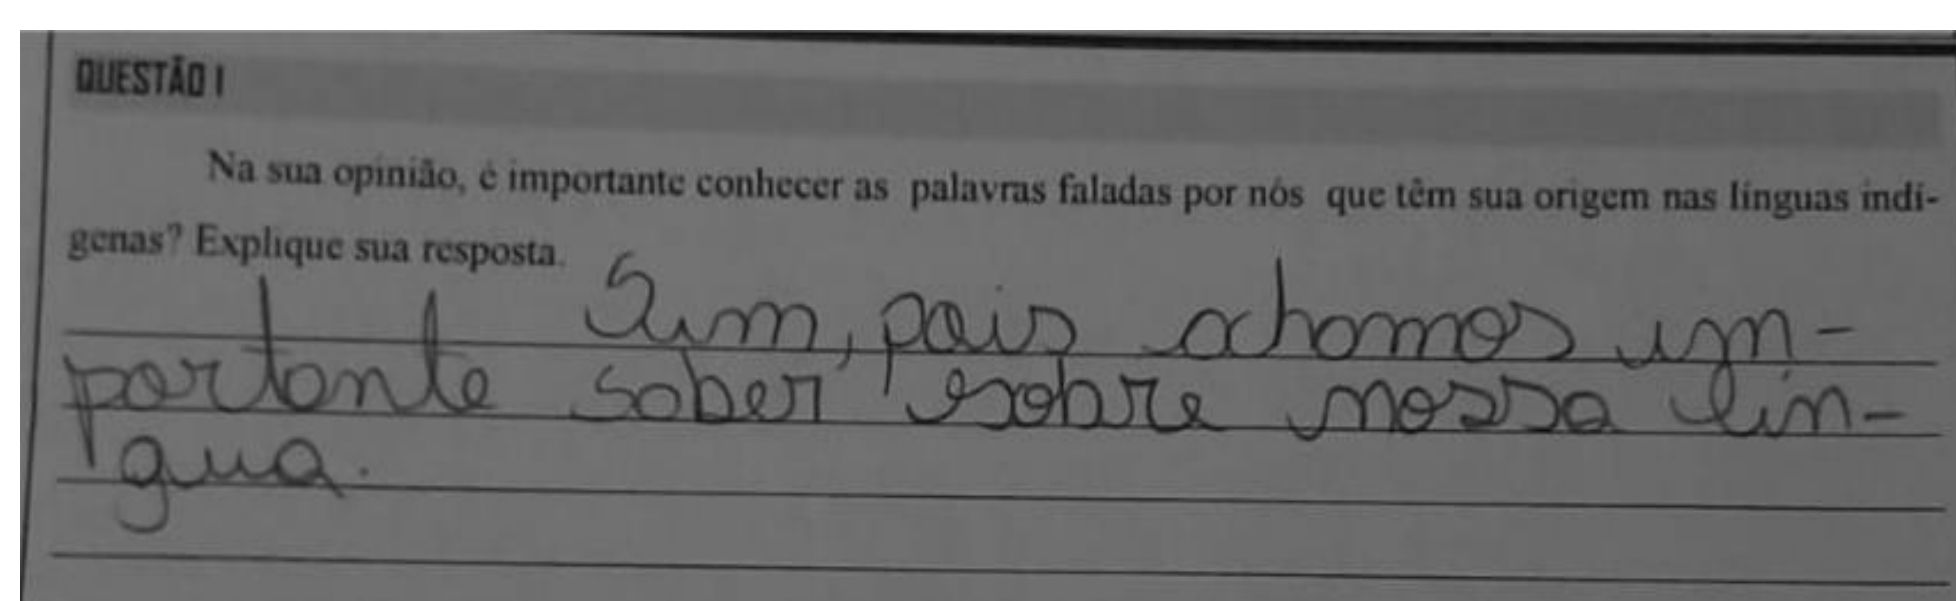 QUESTÃO I
Na sua opinião, é importante conhecer as palavras faladas por nós que têm sua origem nas línguas indí-
genas? Explique sua resposta.
Sim, pois achamos im-
portante saber sobre nossa lín-
gua.